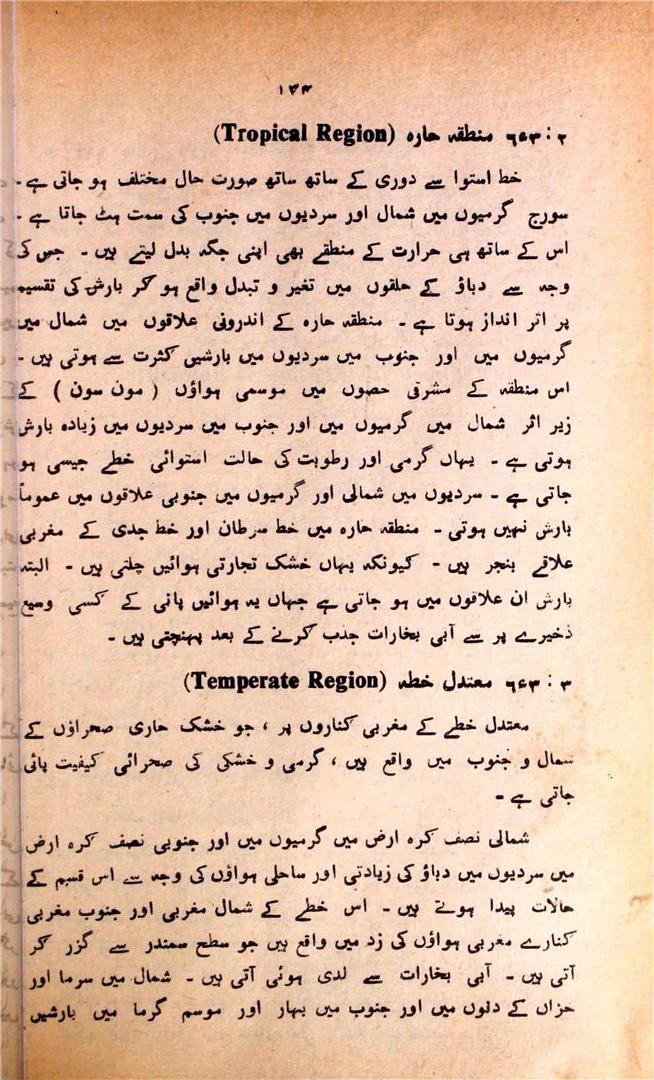 ۱۳۴
۶۶۳:۲ منطقہ حارہ (Tropical Region)
خط استوا سے دوری کے ساتھ ساتھ صورت حال مختلف ہو جاتی ہے۔
سورج گرمیوں میں شمال اور سردیوں میں جنوب کی سمت ہٹ جاتا ہے۔
اس کے ساتھ ہی حرارت کے منطقے بھی اپنی جگہ بدل لیتے ہیں۔ جس کی
وجہ سے دباؤ کے حلقوں میں تغیر و تبدل واقع ہو کر بارش کی تقسیم
پر اثر انداز ہوتا ہے۔ منطقہ حارہ کے اندرونی علاقوں میں شمال میں
گرمیوں میں اور جنوب میں سردیوں میں بارشیں کثرت سے ہوتی ہیں۔
اس منطقہ کے مشرقی حصوں میں موسمی ہواؤں (مون سون) کے
زیر اثر شمال میں گرمیوں میں اور جنوب میں سردیوں میں زیادہ بارش
ہوتی ہے۔ یہاں گرمی اور رطوبت کی حالت استوائی خطے جیسی ہو
جاتی ہے۔ سردیوں میں شمالی اور گرمیوں میں جنوبی علاقوں میں عموماً
بارش نہیں ہوتی۔ منطقہ حارہ میں خط سرطان اور خط جدی کے مغربی
علاقے بنجر ہیں۔ کیونکہ یہاں خشک تجارتی ہوائیں چلتی ہیں۔ البتہ
بارش ان علاقوں میں ہو جاتی ہے جہاں یہ ہوائیں پانی کے کسی وسیع
ذخیرے پر سے آبی بخارات جذب کرنے کے بعد پہنچتی ہیں۔
۶۶۳:۳ معتدل خطہ (Temperate Region)
معتدل خطے کے مغربی کناروں پر، جو خشک حاری صحراؤں کے
شمال و جنوب میں واقع ہیں، گرمی و خشکی کی صحرائی کیفیت پائی
جاتی ہے۔
شمالی نصف کرہ ارض میں گرمیوں میں اور جنوبی نصف کرہ ارض
میں سردیوں میں دباؤ کی زیادتی اور ساحلی ہواؤں کی وجہ سے اس قسم کے
حالات پیدا ہوتے ہیں۔ اس خطے کے شمال مغربی اور جنوب مغربی
کنارے مغربی ہواؤں کی زد میں واقع ہیں جو سطح سمندر سے گزر کر
آتی ہیں۔ آبی بخارات سے لدی ہوئی آتی ہیں۔ شمال میں سرما اور
خزاں کے دنوں میں اور جنوب میں بہار اور موسم گرما میں بارشیں